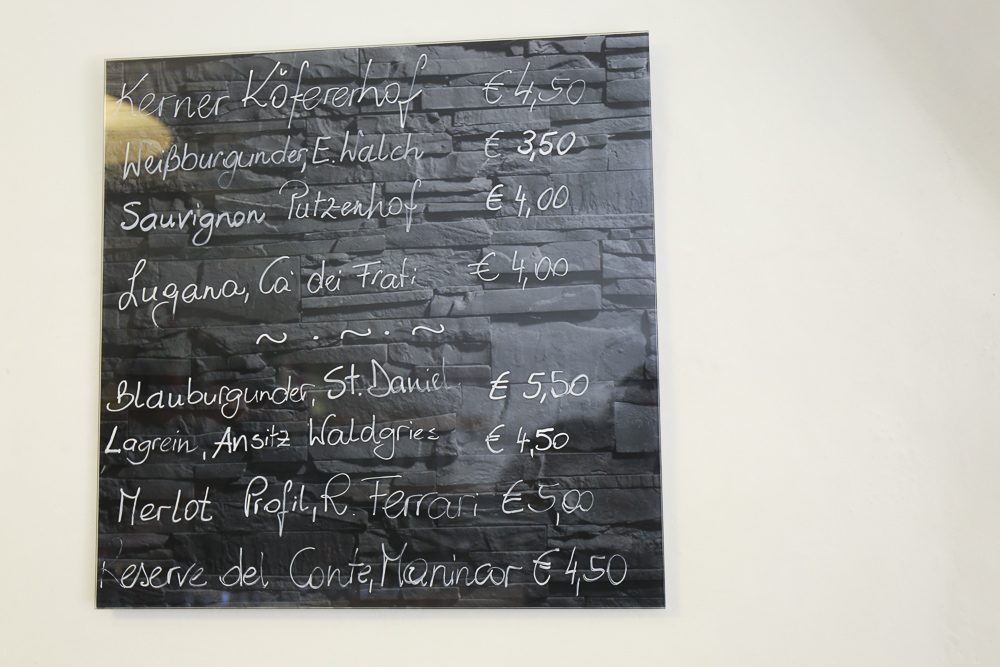 Kerner Köfererhof € 4,50
Weißburgunder, E. Walch € 3,50
Sauvignon Putzenhof € 4,00
Lugana, Ca dei Frati € 4,00
~ · ~ · ~
Blauburgunder, St. Daniel € 5,50
Lagrein, Ansitz Waldgries € 4,50
Merlot Profil, R. Ferrari € 5,00
Reserve del Conte, Manincor € 4,50